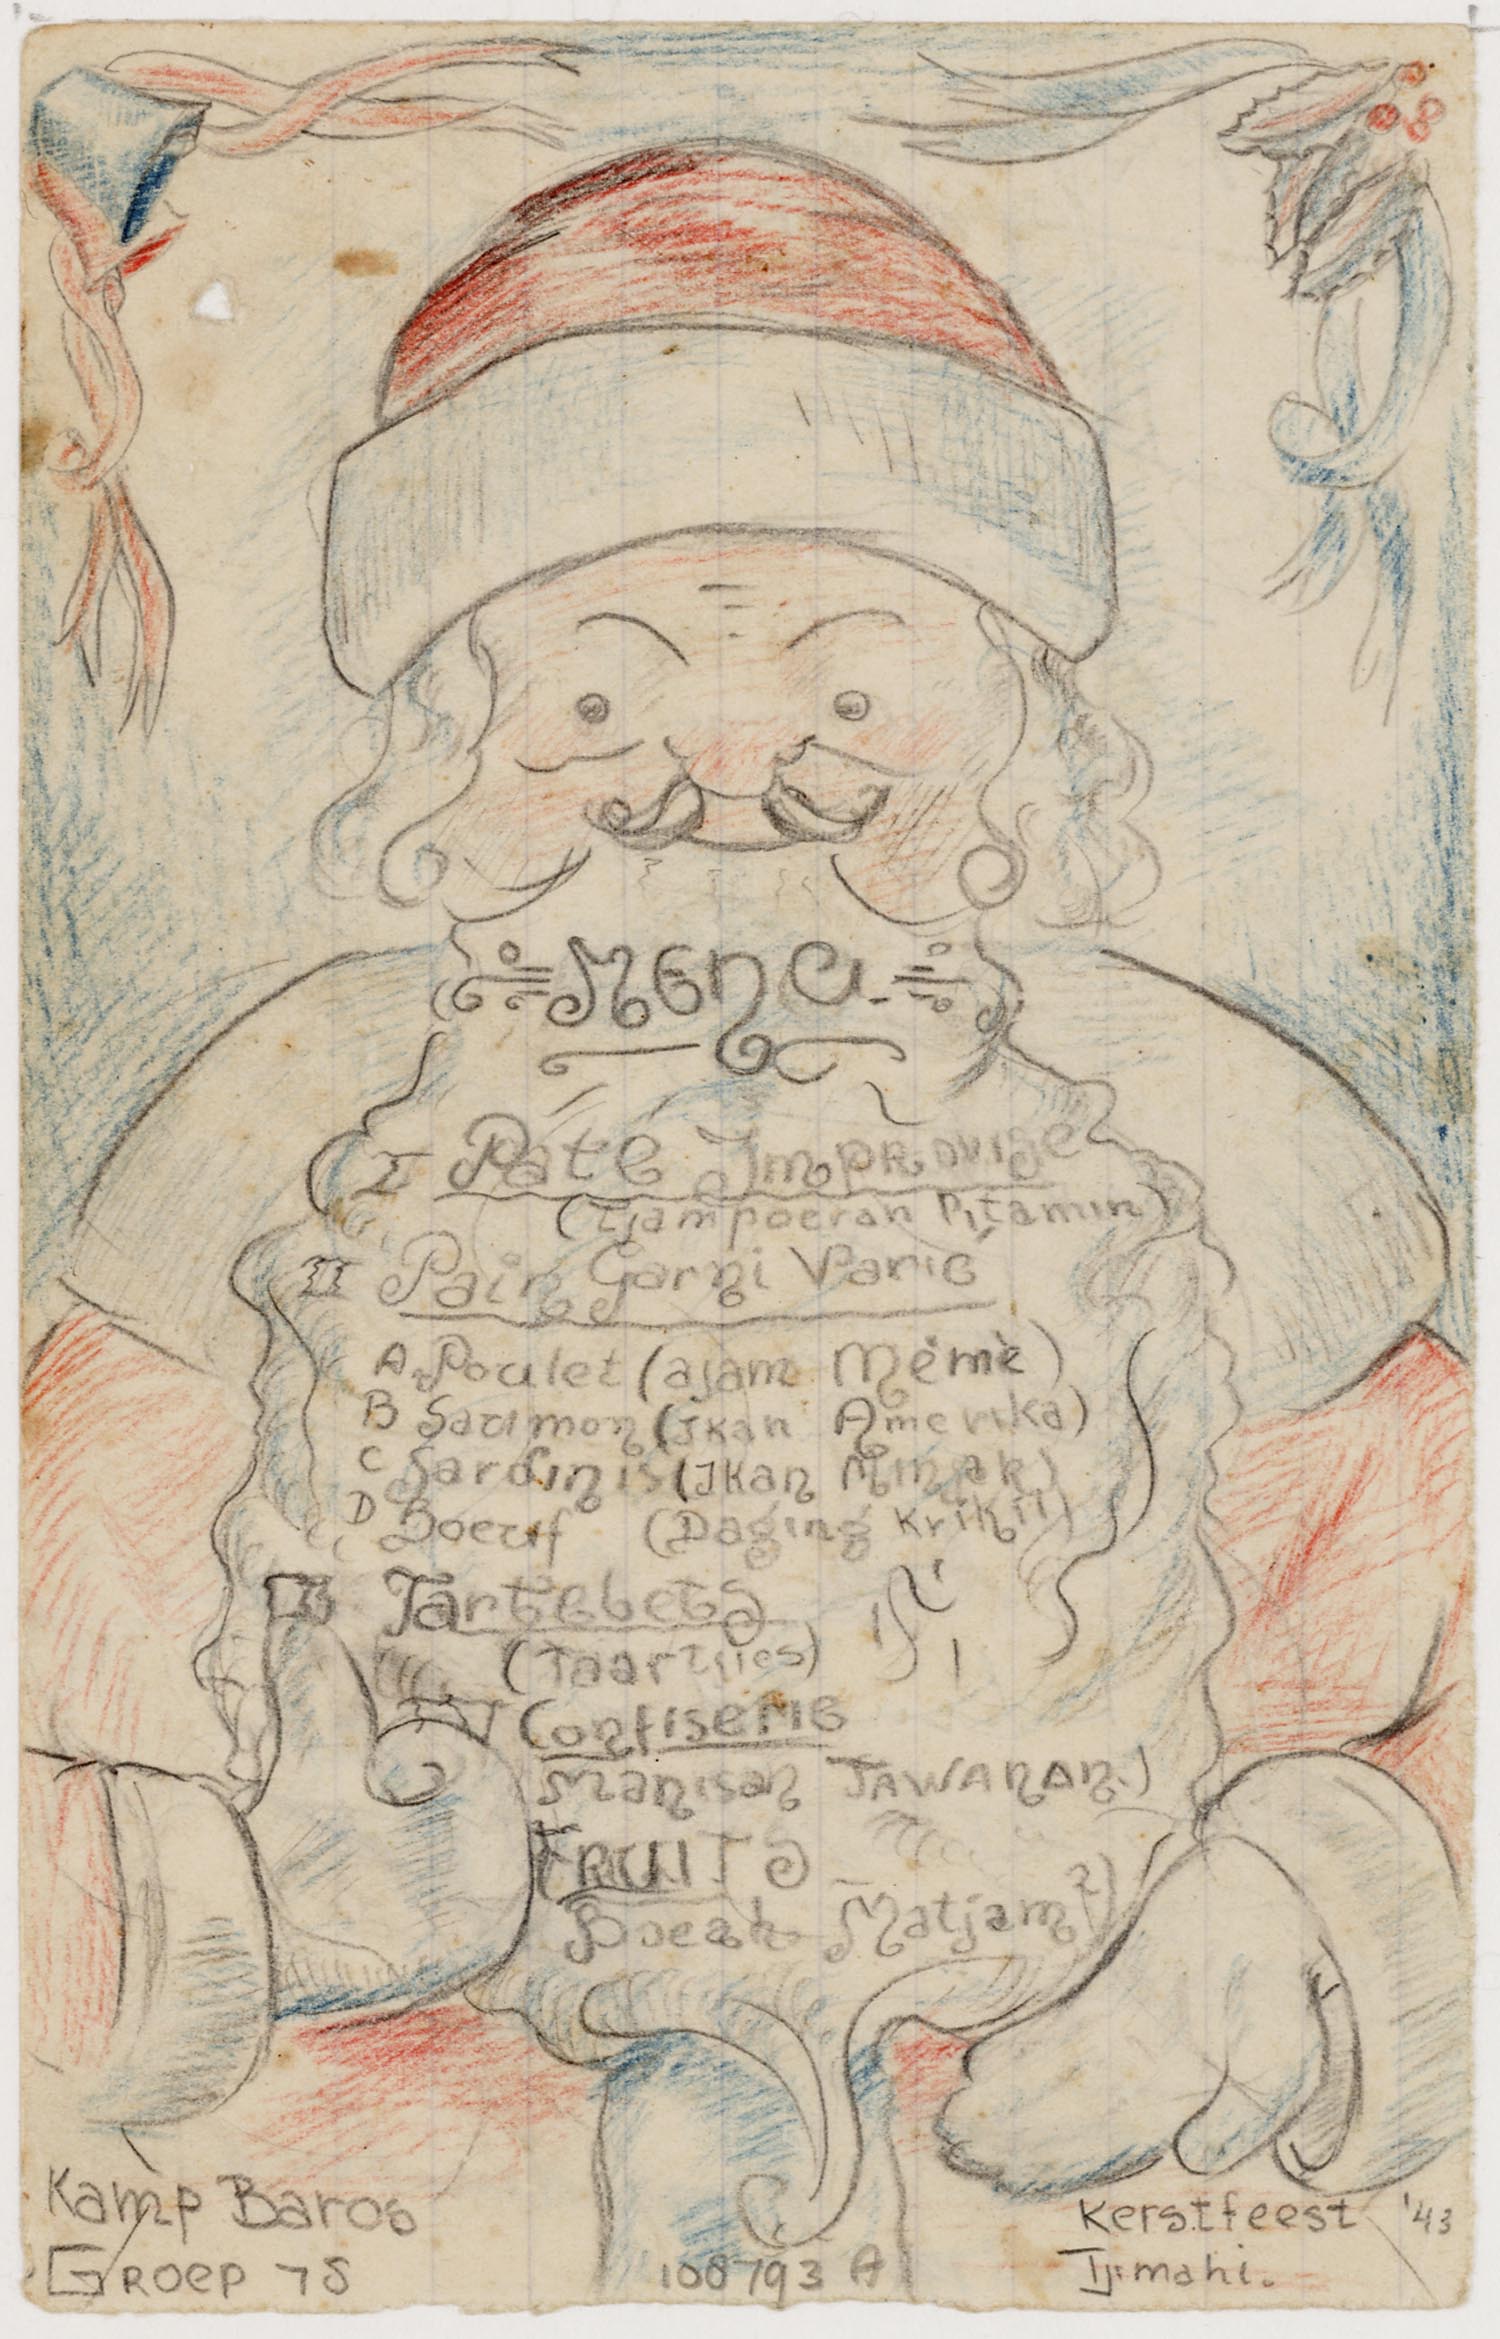 Menu
I Paté Improvisé
(Tjampoeran Pitamin)
II Pain Garni Varié
A. Poulet (ajam Mèmè)
B Saumon (Ikan Amerika)
C Sardinis (Ikan Minjak)
D Boeuf (Daging Krikil)
III Tartelets
(Taartjies)
IV Confiserie
Manisan Jawanan.)
V Fruits
Boeah Matjam²)
Kamp Baros
Groep 78
108793 A
Kerstfeest '43
Tjimahi.